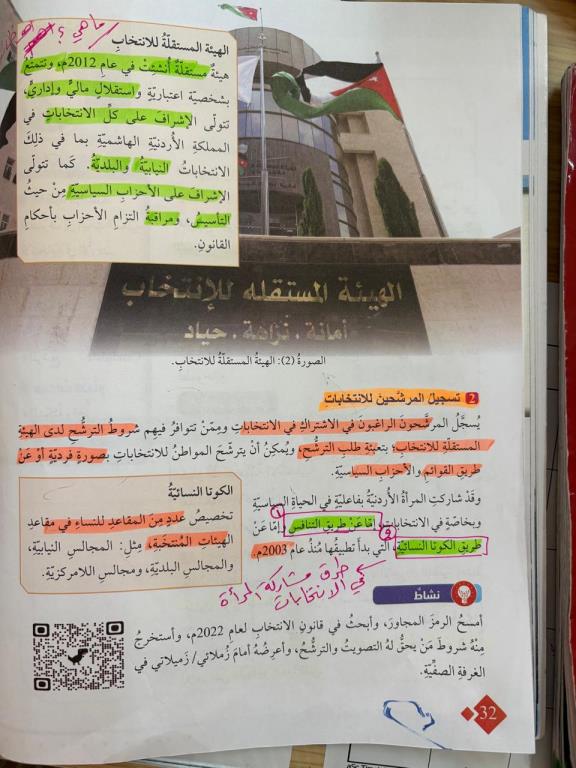 ما هي ؟
الهيئة المستقلّة للانتخابِ
هيئةٌ مستقلّةٌ أُنشِئتْ في عامِ 2012م، وتتمتّعُ
بشخصيةٍ اعتباريّةٍ واستقلالٍ ماليٍّ وإداريٍّ،
تتولّى الإشرافَ على كلِّ الانتخاباتِ في
المملكةِ الأردنيّةِ الهاشميّةِ بما في ذلكَ
الانتخاباتُ النيابيّةُ والبلديّةُ. كَما تتولّى
الإشرافَ على الأحزابِ السياسيّةِ مِنْ حيثُ
التأسيسُ، ومراقبةُ التزامِ الأحزابِ بأحكامِ
القانونِ.
الهيئة المستقلة للإنتخاب
أمانة . نزاهة . حياد
الصورةُ (2): الهيئةُ المستقلّةُ للانتخابِ.
2 تسجيل المرشّحين للانتخاباتِ
يُسجَّلُ المرشَّحونَ الراغبونَ في الاشتراكِ في الانتخاباتِ ومِمّنْ تتوافرُ فيهِم شروطُ الترشُّحِ لدى الهيئةِ
المستقلّةِ للانتخابِ؛ بتعبئةِ طلبِ الترشُّحِ، ويُمكِنُ أنْ يترشّحَ المواطنُ للانتخاباتِ بصورةٍ فرديّةٍ أوْ عَنْ
طريقِ القوائمِ والأحزابِ السياسيّةِ.
وقَدْ شاركتِ المرأةُ الأردنيّةُ بفاعليّةٍ في الحياةِ السياسيّةِ
وبخاصّةٍ في الانتخاباتِ، إمّا عَنْ طريقِ التنافسِ وإمّا عَنْ
طريقِ الكوتا النسائيّةِ، التي بدأَ تطبيقُها مُنذُ عامِ 2003م.
1
2
الكوتا النسائيّةُ
تخصيصُ عددٍ مِنَ المقاعدِ للنساءِ في مقاعدِ
الهيئاتِ المُنتخَبةِ، مِثل: المجالسِ النيابيّةِ،
والمجالسِ البلديّةِ، ومجالسِ اللامركزيّةِ.
طرق مشاركة المرأة
في الانتخابات
نشاطٌ
أمسحُ الرمزَ المجاورَ، وأبحثُ في قانونِ الانتخابِ لعامِ 2022م، وأستخرجُ
مِنْهُ شروطَ مَنْ يحقُّ لهُ التصويتُ والترشُّحُ، وأعرِضُهُ أمامَ زُملائي/ زَميلاتي في
الغرفةِ الصفّيّةِ.
32